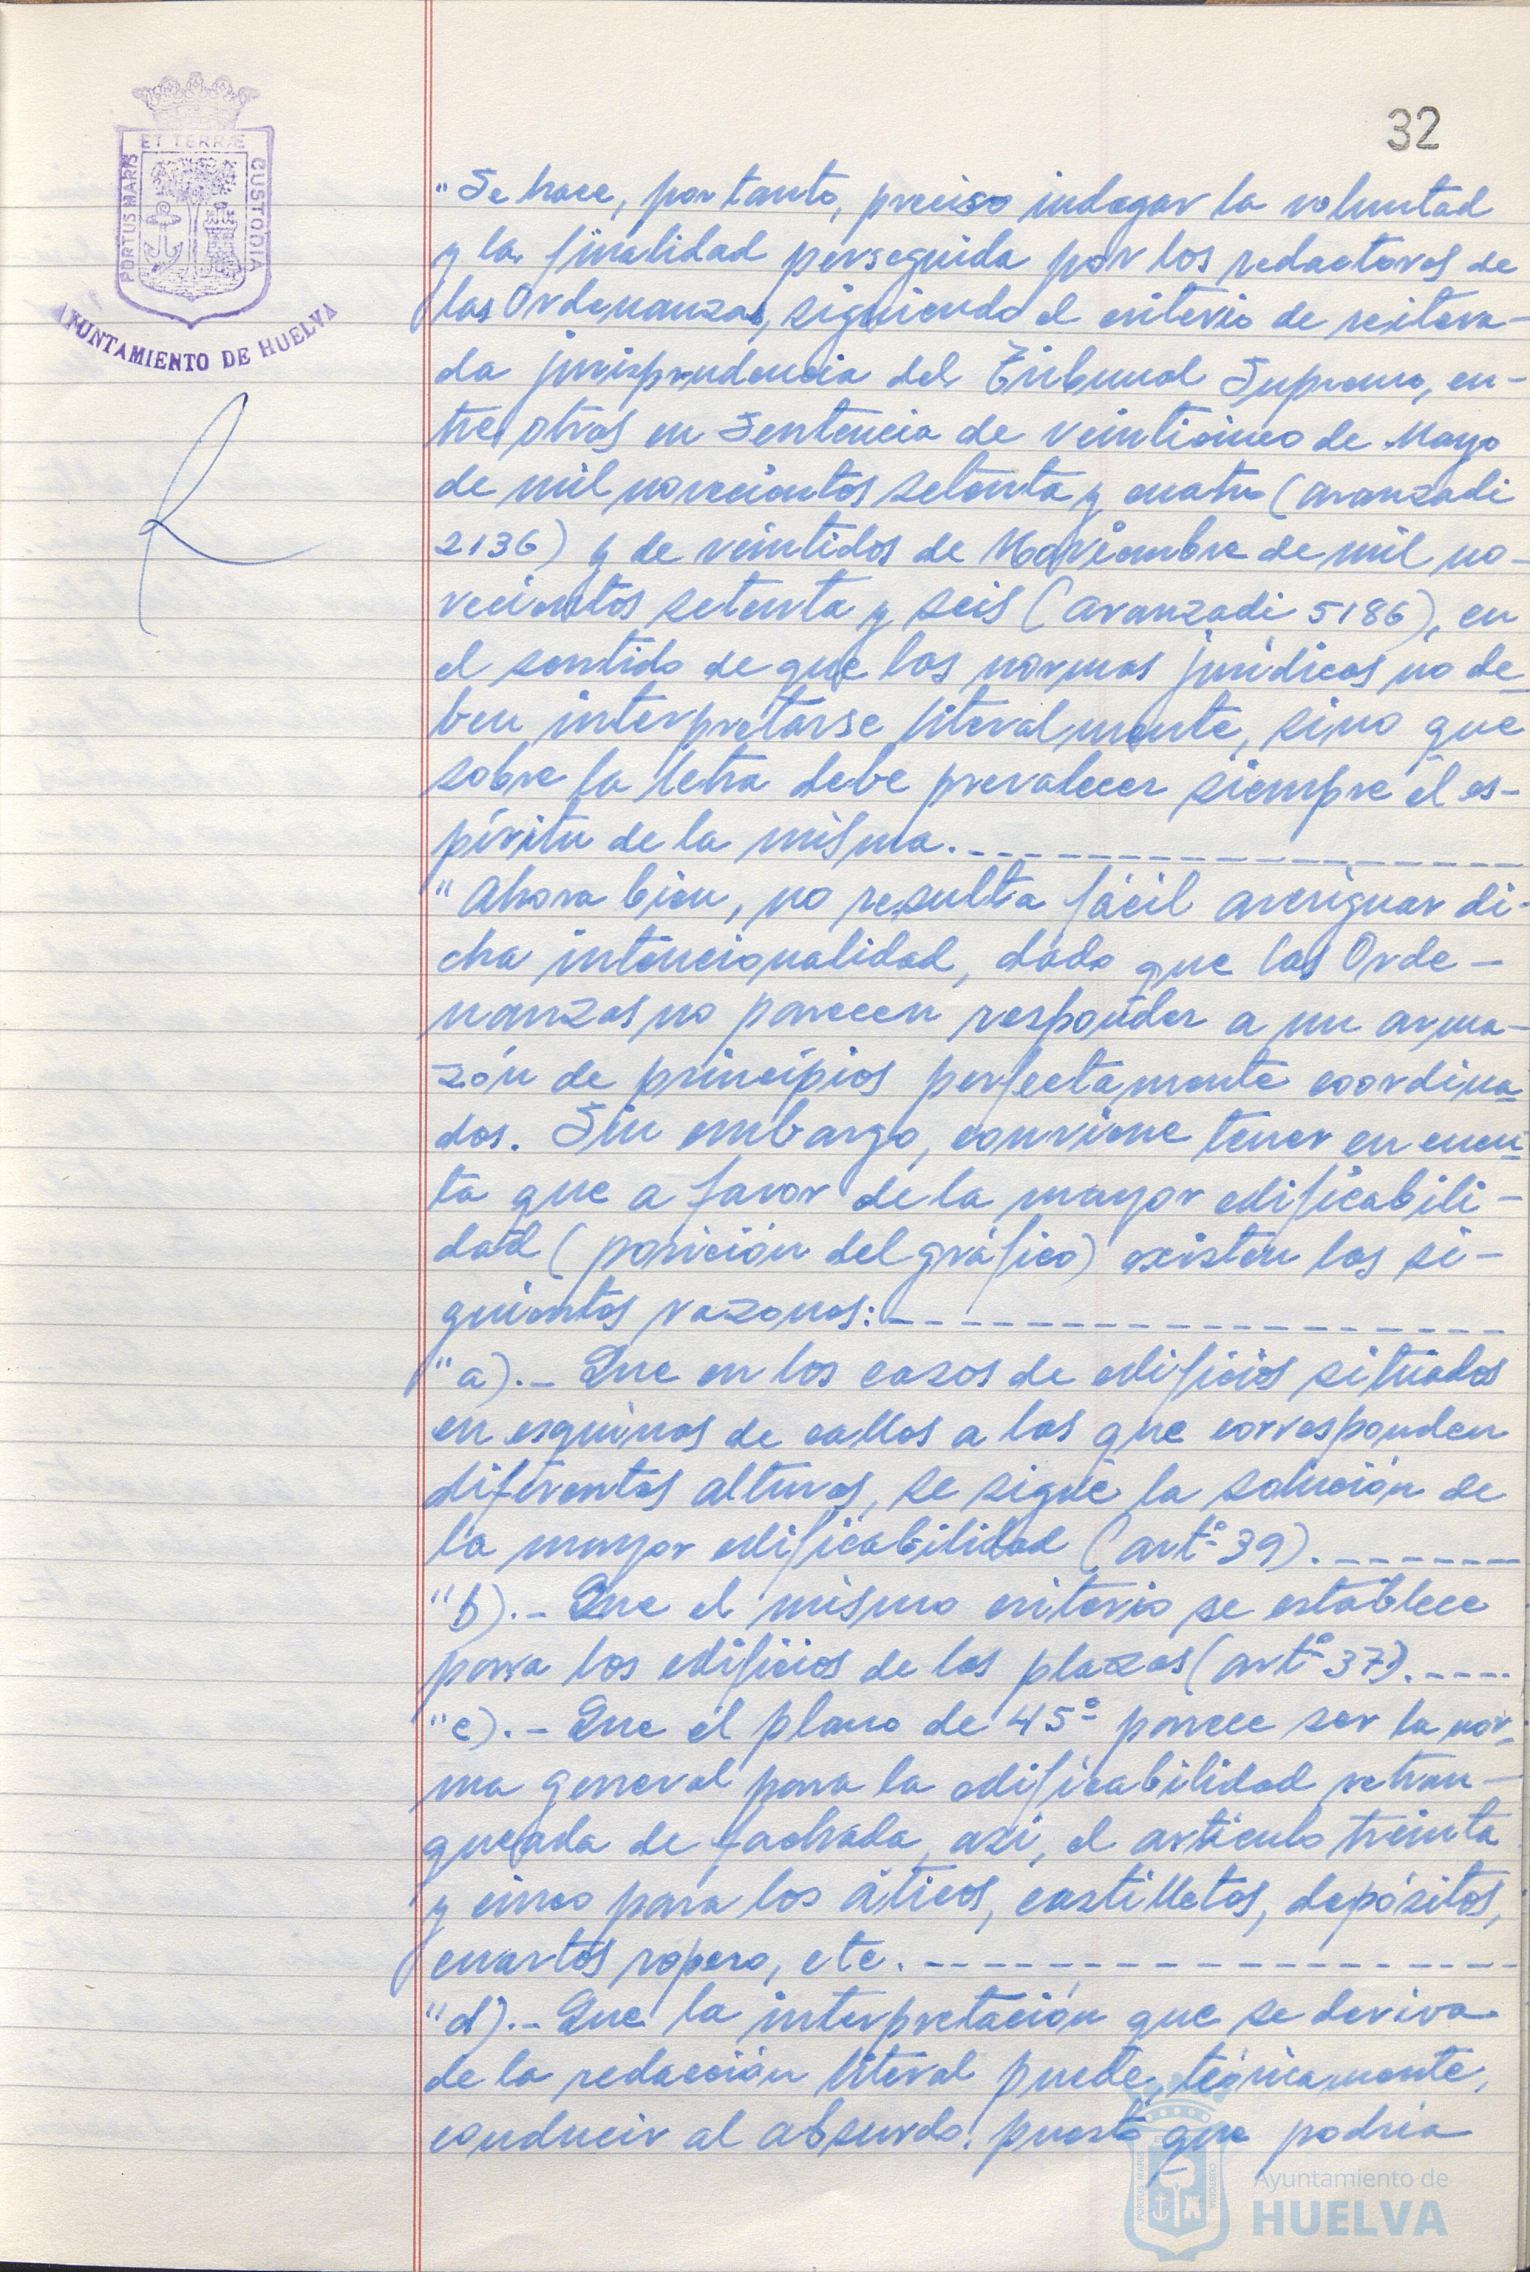 32
ET TERRÆ
PORTUS MARIS
CUSTODIA
AYUNTAMIENTO DE HUELVA
"Se hace, por tanto, preciso indagar la voluntad
y la finalidad perseguida por los redactores de
las Ordenanzas, siguiendo el criterio de reitera-
da jurisprudencia del Tribunal Supremo, en-
tre otras en Sentencia de veinticinco de Mayo
de mil novecientos setenta y cuatro (aranzadi
2136) y de veintidos de Noviembre de mil no-
vecientos setenta y seis (aranzadi 5186), en
el sentido de que las normas jurídicas no de-
ben interpretarse literalmente, sino que
sobre la letra debe prevalecer siempre el es-
píritu de la misma.
"Ahora bien, no resulta fácil averiguar di-
cha intencionalidad, dado que las Orde-
nanzas no parecen responder a un arma-
zón de principios perfectamente coordina-
dos. Sin embargo, conviene tener en cuen-
ta que a favor de la mayor edificabili-
dad (posición del gráfico) existen las si-
guientes razones:
"a).- Que en los casos de edificios situados
en esquinas de calles a las que corresponden
diferentes alturas, se sigue la solución de
la mayor edificabilidad (artº 39).
"b).- Que el mismo criterio se establece
para los edificios de las plazas (artº 37).
"c).- Que el plano de 45º parece ser la nor-
ma general para la edificabilidad retran-
queada de fachada, asi, el artículo treinta
y cinco para los áticos, castilletes, depósitos,
cuartos ropero, etc.
"d).- Que la interpretación que se deriva
de la redacción literal puede, teóricamente,
conducir al absurdo, puesto que podría
PORTUS MARIS
CUSTODIA
Ayuntamiento de
HUELVA